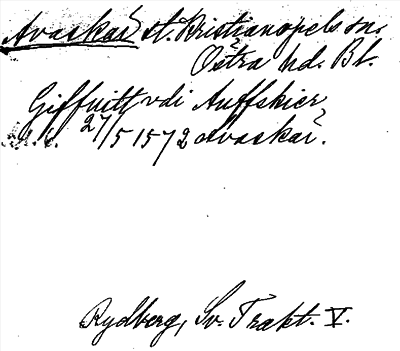 Avaskär st. Kristianopels sn.
Östra hd. Bl.
Giffuitt vdi Auffskier
27/5 1572 Avaskär.
Rydberg, Sv. Trakt. V.